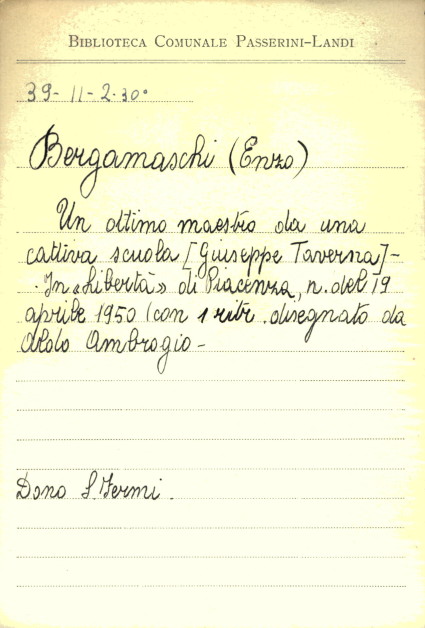 BIBLIOTECA COMUNALE PASSERINI-LANDI
39-11-2.30°
Bergamaschi (Enzo)
Un ottimo maestro da una
cattiva scuola [Giuseppe Taverna]-
.In «Libertà» di Piacenza, n. del 19
aprile 1950 (con 1 ritr. disegnato da
Aldo Ambrogio-
Dono S. Fermi.